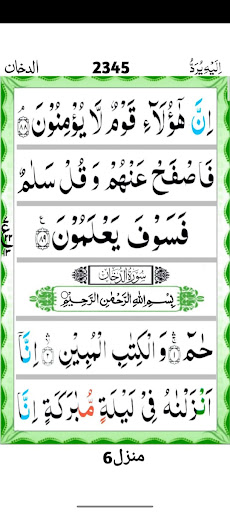 الدخان 2345 اِلَیْهِ یُرَدُّ
اِنَّ هٰۤؤُلَآءِ قَوْمٌ لَّا یُؤْمِنُوْنَ ۘ ﴿۸۸﴾
فَاصْفَحْ عَنْهُمْ وَ قُلْ سَلٰمٌ
فَسَوْفَ یَعْلَمُوْنَ ﴿۸۹﴾ ع
سُوْرَةُ الدُّخَان
بِسْمِ اللّٰهِ الرَّحْمٰنِ الرَّحِیْمِ
حٰمٓ ﴿۱﴾ وَ الْكِتٰبِ الْمُبِیْنِ ﴿۲﴾ اِنَّاۤ
اَنْزَلْنٰهُ فِیْ لَیْلَةٍ مُّبٰرَكَةٍ اِنَّا
منزل6